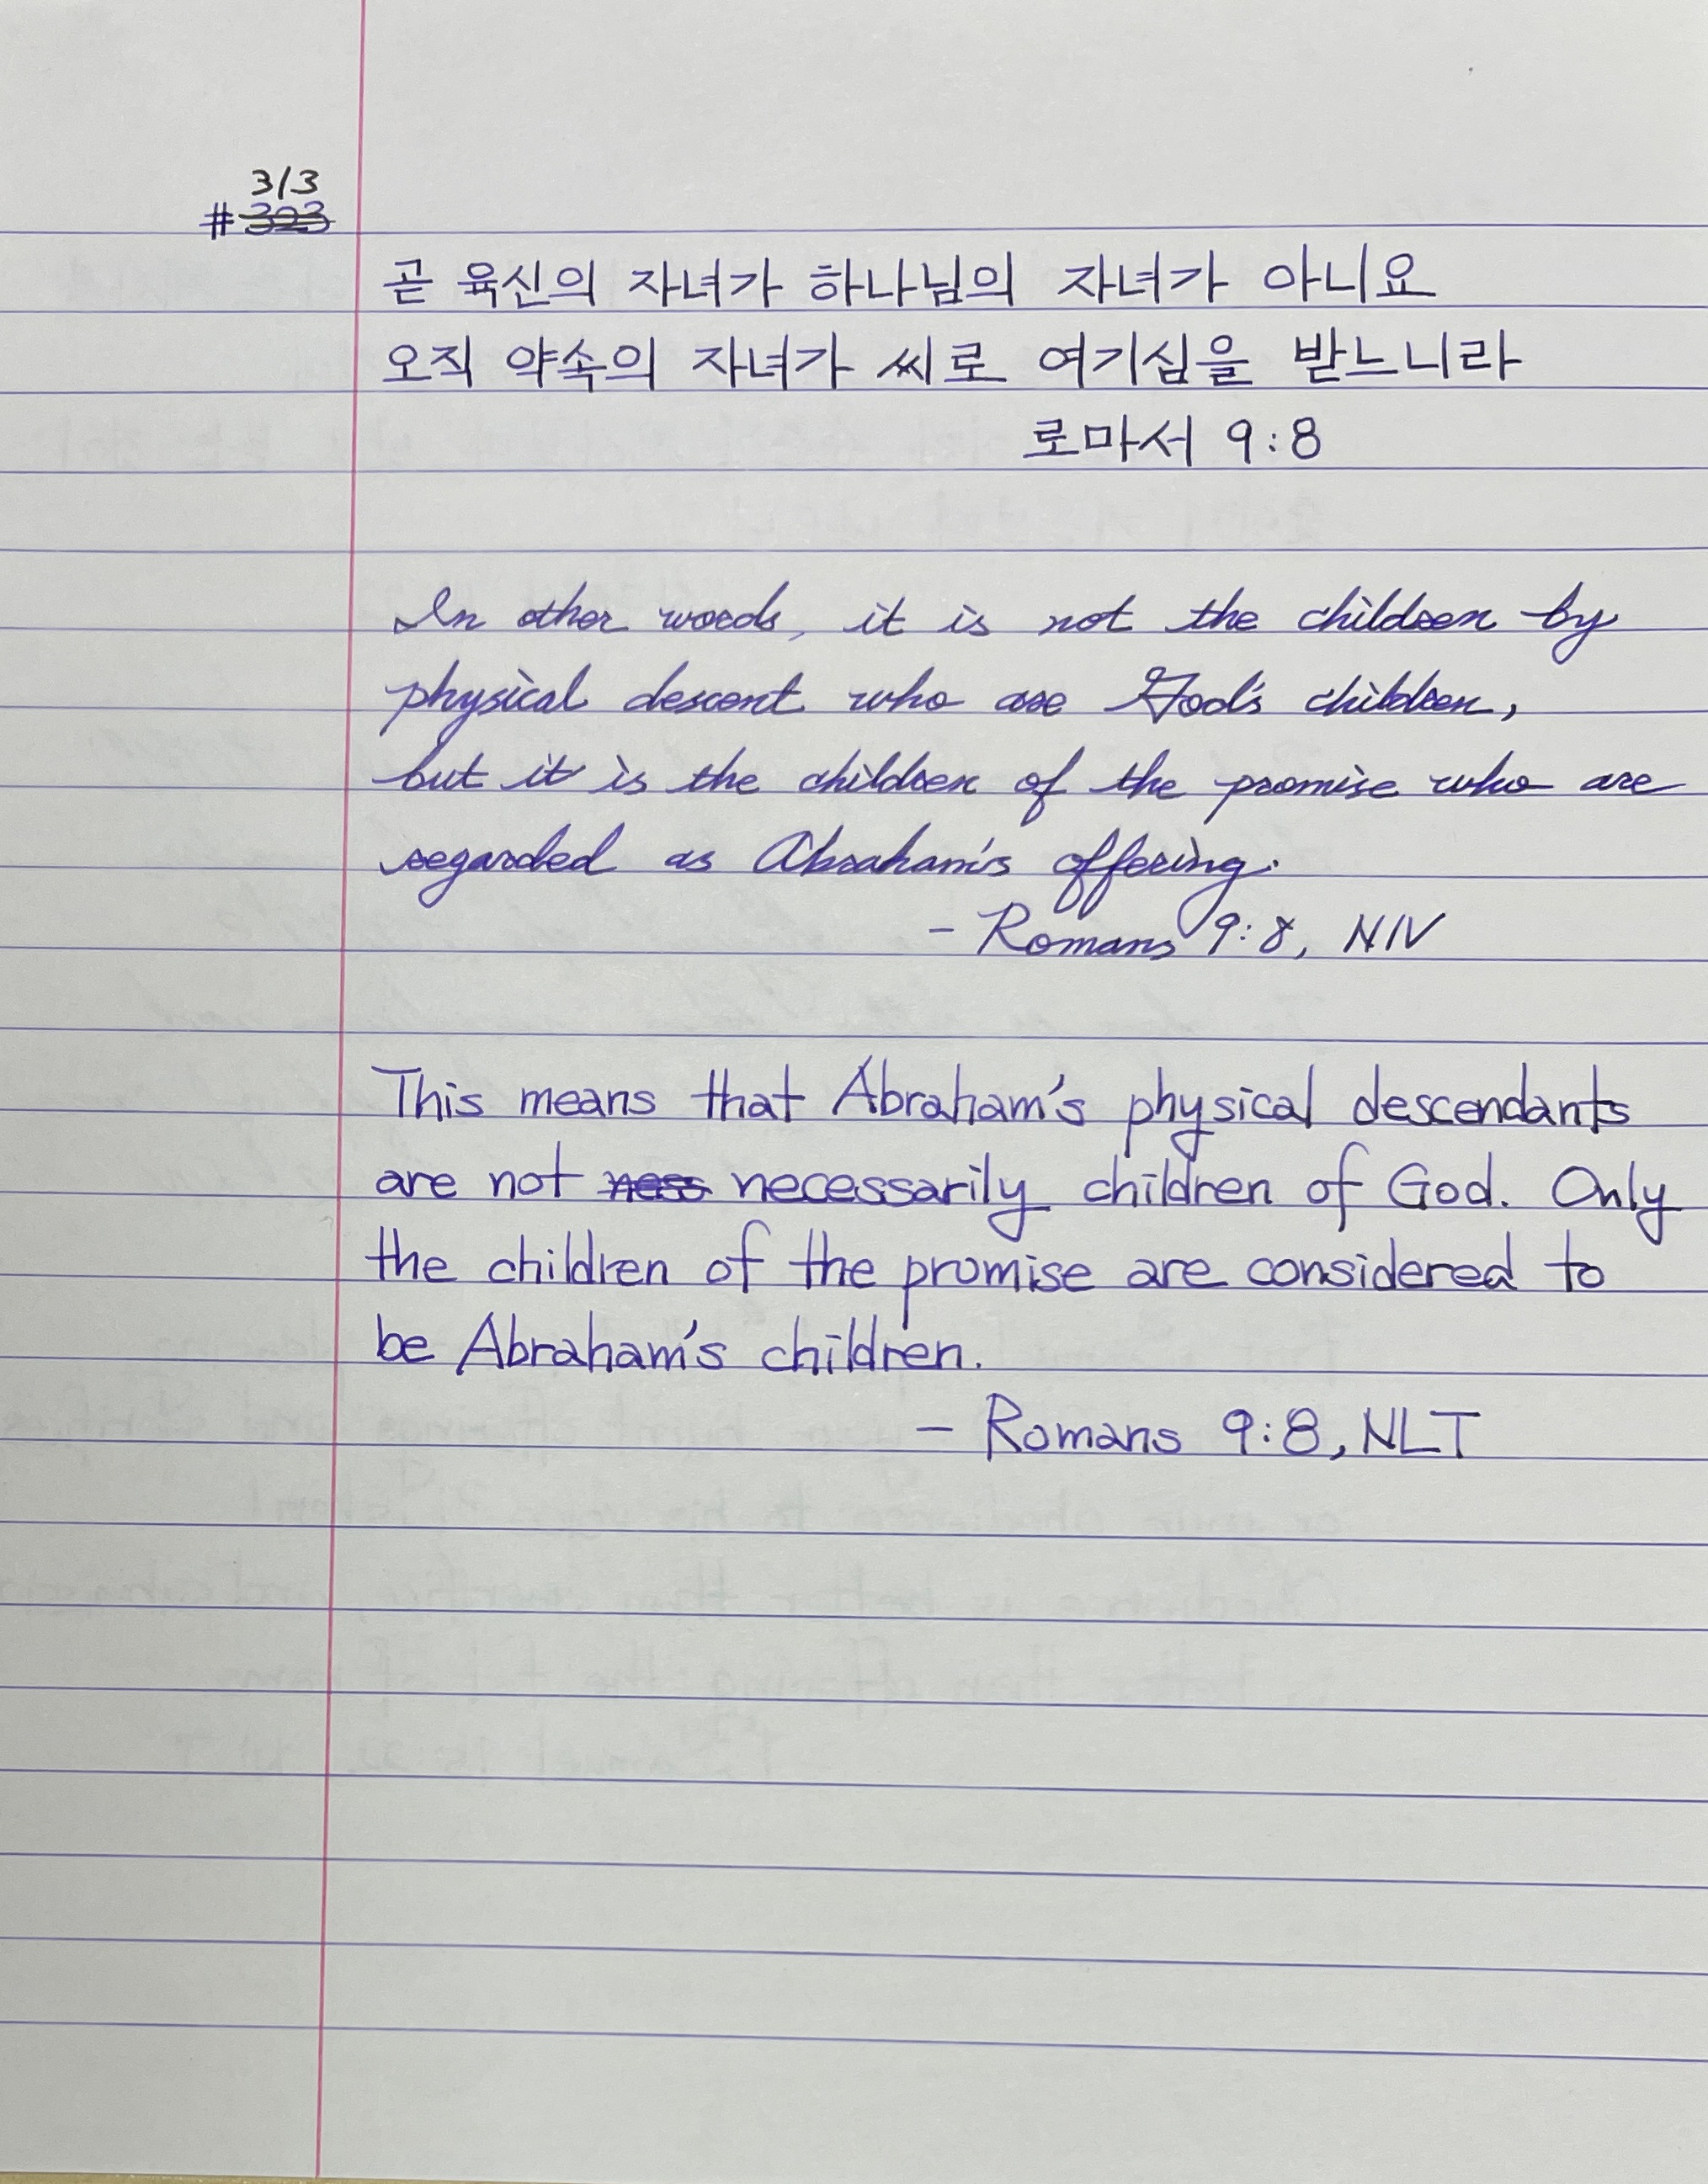 3/3
# 303
곧 육신의 자녀가 하나님의 자녀가 아니요
오직 약속의 자녀가 씨로 여기심을 받느니라
로마서 9:8
In other words, it is not the children by
physical descent who are God's children,
but it is the children of the promise who are
regarded as Abraham's offering.
- Romans 9:8, NIV
This means that Abraham's physical descendants
are not ness necessarily children of God. Only
the children of the promise are considered to
be Abraham's children.
- Romans 9:8, NLT